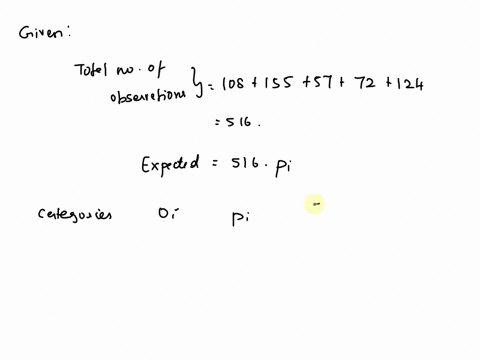 Given:
Total no. of
observations } = 108 + 155 + 57 + 72 + 124
= 516.
Expected = 516. pi
Categories Oi pi